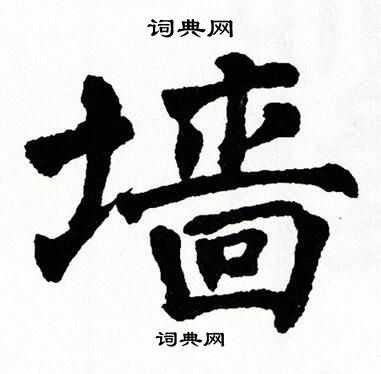 词典网
墙
词典网